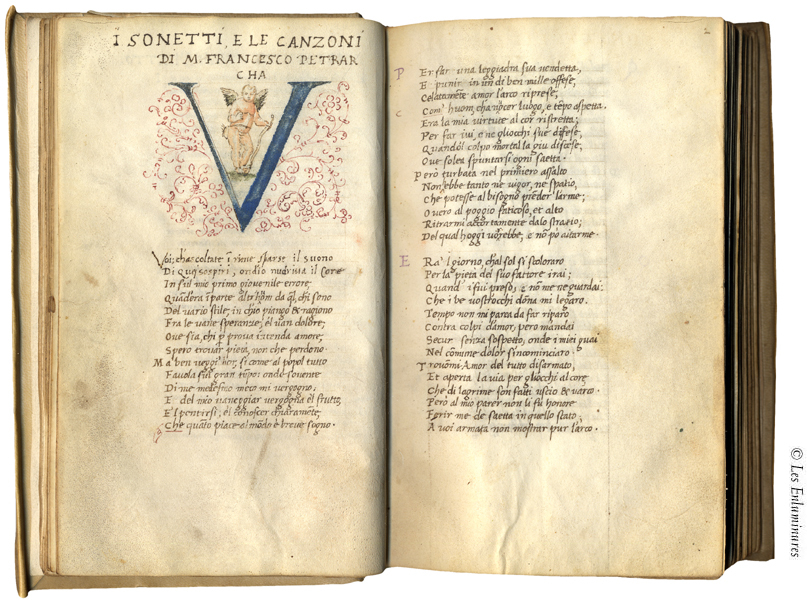 I SONETTI, E LE CANZONI
DI M. FRANCESCO PETRAR
CHA
V
Voi, ch'ascoltate ĩ rime sparse il suono
Di quei sospiri, ond'io nudriva il core
In sul mio primo giovenile errore,
Quand'era ĩ parte altr'hom da ql, chi sono
Del vario stile, in ch'io piango & ragiono
Fra le vane speranze, e'l van dolore;
Oue sia, chi p prova intenda amore,
Spero trovar pietà, non che perdono.
Ma ben veggi hor, si come al popol tutto
Favola fui gran tẽpo: onde sovente
Di me medesmo meco mi vergogno.
E del mio vaneggiar vergogna è'l frutto,
E'l pentirsi, e'l conoscer chiaramẽte,
Che quãto piace al mõdo è breve sogno.
2
P Er far una leggiadra sua vendetta,
E punir in un di ben mille offese,
Celatamẽte amor l'arco riprese;
Com' huom, cha nocer luogo, e tẽpo aspetta.
Era la mia virtute al cor ristretta;
Per far ivi, e ne gliocchi sue difese;
Quando'l colpo mortal la giu discese,
Oue solea spuntarsi ogni saetta.
Però turbata nel primiero assalto
Non hebbe tanto ne vigor, ne spatio,
Che potesse al bisogno prẽder l'arme;
Overo al poggio faticoso, et alto
Ritrarmi accortamente dalo stratio;
Del qual hoggi vorrebbe, e nõ pò aitarme.
E Ra'l giorno, ch'al sol si scoloraro
Per la pietà del suo fattore i rai;
Quand' i fui preso, e nõ me ne guardai;
Che i be vostr'occhi dõna mi legaro.
Tempo non mi parea da far riparo
Contra colpi d'amor, però m'andai
Secur senza sospetto, onde i miei guai
Nel comune dolor s'incominciaro.
Trovòmi Amor del tutto disarmato,
Et aperta la via per gliocchi al core,
Che di lagrime son fatti uscio & varco.
Però al mio parer non li fu honore
Ferir me de saetta in quello stato;
A voi armata non mostrar pur l'arco.
© Les Enluminures